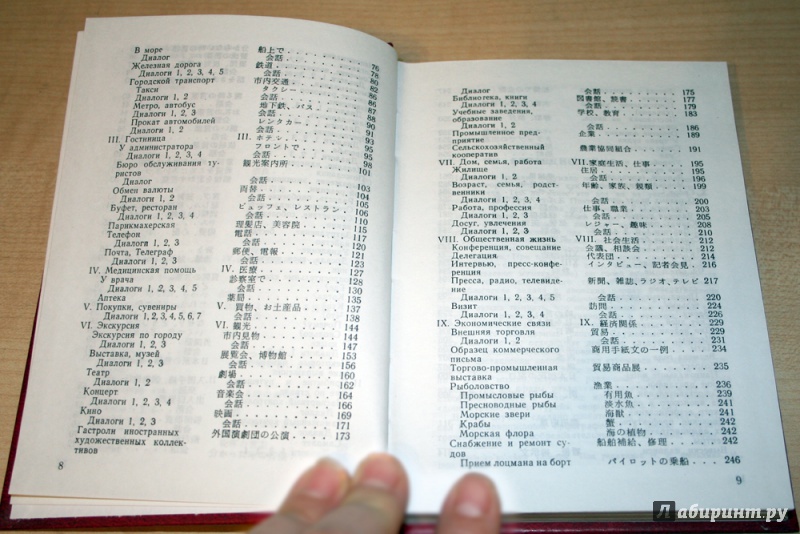 В море 船上で
Диалог 会話 76
Железная дорога 鉄道 78
Диалоги 1, 2, 3, 4, 5 会話 80
Городской транспорт 市内交通 82
Такси タクシー 86
Диалоги 1, 2 会話 86
Метро, автобус 地下鉄、バス 87
Диалоги 1, 2, 3 会話 88
Прокат автомобилей レンタカー 90
Диалоги 1, 2 会話 91
III. Гостиница III. ホテル 93
У администратора フロントで 95
Диалоги 1, 2, 3, 4 会話 95
Бюро обслуживания ту- 観光案内所 98
ристов 101
Диалог 会話
Обмен валюты 両替 103
Диалоги 1, 2 会話 104
Буфет, ресторан ビュッフェ、レストラン 105
Диалоги 1, 2, 3, 4 会話 106
Парикмахерская 理髪店、美容院 110
Телефон 電話 115
Диалоги 1, 2, 3 会話 117
Почта, Телеграф 郵便、電報 120
Диалоги 1, 2, 3 会話 121
IV. Медицинская помощь IV. 医療 127
У врача 診察室で 128
Диалоги 1, 2, 3, 4, 5 会話 130
Аптека 薬局 135
V. Покупки, сувениры V. 買物、お土産品 137
Диалоги 1, 2, 3, 4, 5, 6, 7 会話 138
VI. Экскурсия VI. 観光 144
Экскурсия по городу 市内見物 144
Диалоги 1, 2, 3 会話 147
Выставка, музей 展覧会、博物館 153
Диалоги 1, 2, 3 会話 156
Театр 劇場 160
Диалоги 1, 2 会話 162
Концерт 音楽会 164
Диалоги 1, 2, 3, 4 会話 166
Кино 映画 169
Диалоги 1, 2, 3 会話 171
Гастроли иностранных 外国演劇団の公演 173
художественных коллек-
тивов
8
Диалог 会話 175
Библиотека, книги 図書館、読書 177
Диалоги 1, 2, 3, 4 会話 179
Учебные заведения, 学校、教育 183
образование
Диалоги 1, 2 会話 186
Промышленное пред- 企業 189
приятие
Сельскохозяйственный 農業協同組合 191
кооператив
VII. Дом, семья, работа VII. 家庭生活、仕事 195
Жилище 住居 195
Диалоги 1, 2, 3 会話 196
Возраст, семья, родст- 年齢、家族、親類 199
венники
Диалоги 1, 2, 3, 4 会話 200
Работа, профессия 仕事、職業 203
Диалоги 1, 2, 3 会話 205
Досуг, увлечения レジャー、趣味 208
Диалоги 1, 2, 3 会話 210
VIII. Общественная жизнь VIII. 社会生活 212
Конференция, совещание 会議、相談会 212
Делегация 代表団 214
Интервью, пресс-конфе- インタビュー、記者会見 216
ренция
Пресса, радио, телевиде- 新聞、雑誌、ラジオ、テレビ 217
ние
Диалоги 1, 2, 3, 4, 5 会話 220
Визит 訪問 224
IX. Экономические связи IX. 経済関係 229
Внешняя торговля 貿易 229
Диалоги 1, 2 会話 231
Образец коммерческого 商用手紙文の一例 234
письма
Торгово-промышленная 貿易商品展 235
выставка
Рыболовство 漁業 236
Промысловые рыбы 有用魚 239
Пресноводные рыбы 淡水魚 241
Морские звери 海獣 241
Крабы 蟹 242
Морская флора 海の植物 242
Снабжение и ремонт су- 船舶補給、修理 242
дов
Прием лоцмана на борт パイロットの乗船 246
9
Лабиринт.ру